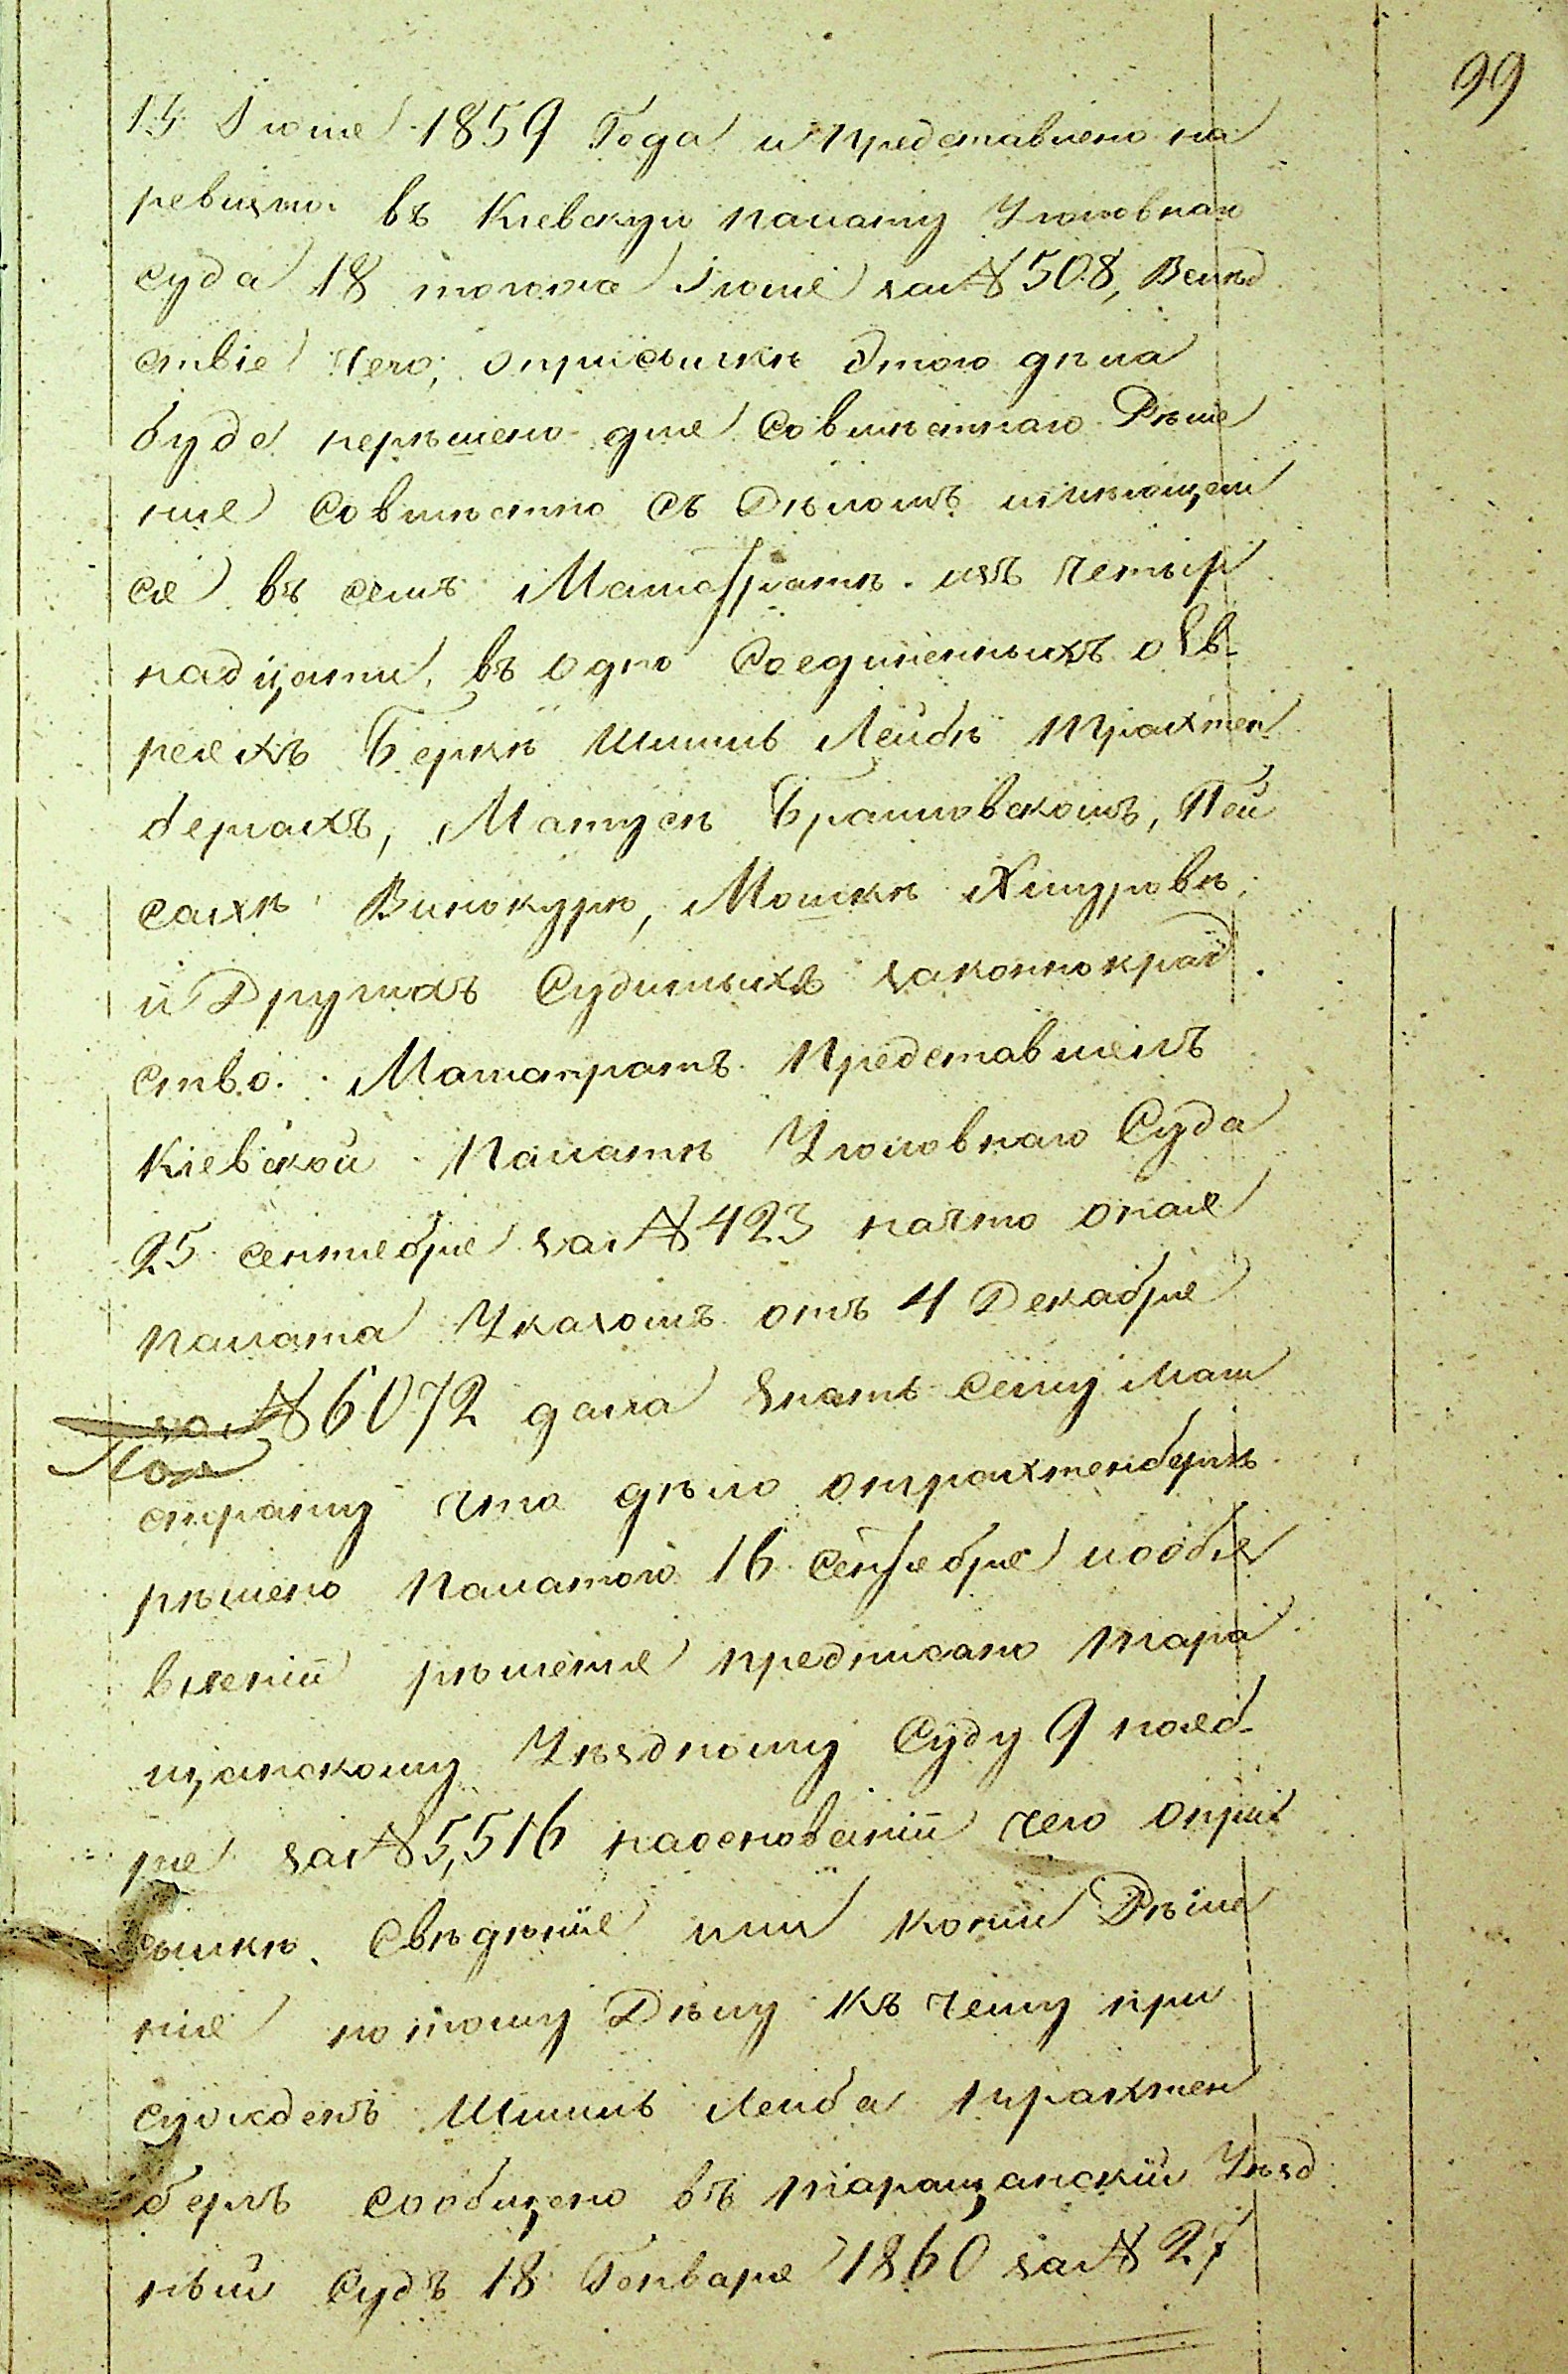 99
15 Іюня 1859 Года и представлено на
ревизію въ Кіевскую палату Уголовнаго
суда 18 тогожа Іюня за № 508, Вслѣд
ствіе чего, о присылкѣ этого дѣла
буде нерѣшено для Совмѣстнаго Рѣше
нія Совмѣстно съ Дѣломъ имѣющем
ся въ семъ Магистратѣ изъ четыр
надцати въ одно Соединенныхъ о Ев
реяхъ Беркѣ Шимѣ Лейбѣ Трахтен
бергахъ, Матусѣ Браиловскомъ, Пей
сахѣ Винокурѣ, Мошкѣ Хмуровѣ
и Другихъ Судимыхъ за коннокрад
ство. Магистратъ Представилъ
Кіевской Палатѣ Уголовнаго Суда
25 сентября за № 423 на что оная
палата Указомъ отъ 4 Декабря
за № 6072 дала знать сему Маги
страту что дѣло о трахтенбергѣ
рѣшено Палатою 16 Сентября и о объя
вленіи рѣшенія предписано Тара
щанскому Уѣздному Суду 9 нояб
ря за № 5,516 на основаніи чего о при
сылкѣ Свѣдѣнія или копіи Рѣше
нія по тому Дѣлу къ чему при
сужденъ Шимъ Лейба Трахтен
бергъ сообщено въ Таращанскій Уѣзд
ный Судъ 18 Генваря 1860 за № 27